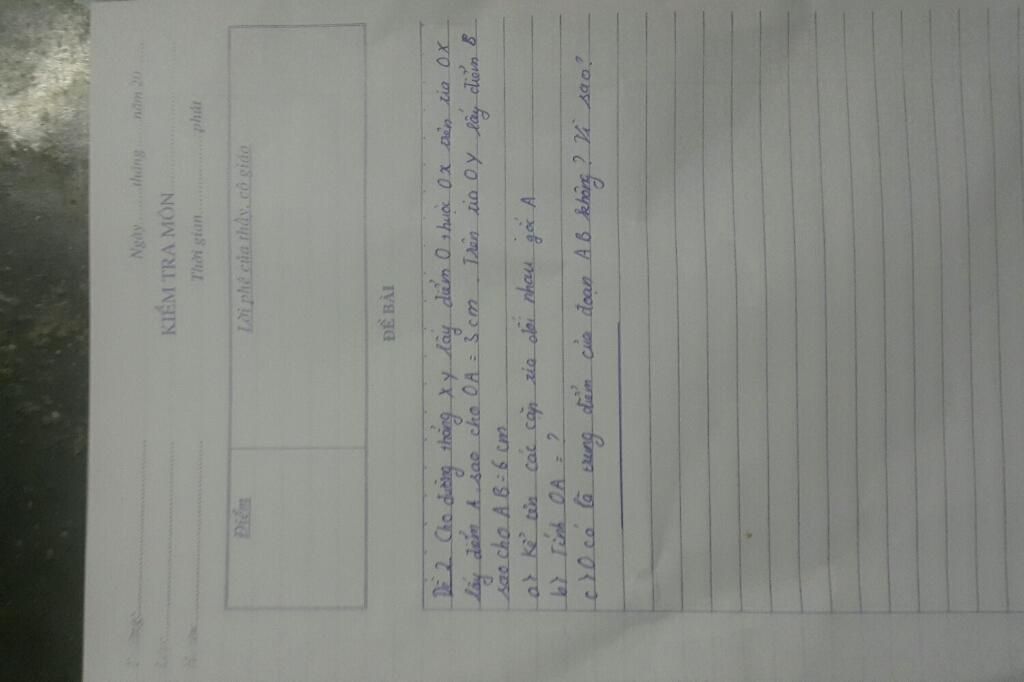 Ngày.........tháng......năm 20.....
KIỂM TRA MÔN
Thời gian....................phút
Lớp
Điểm
Lời phê của thầy, cô giáo
ĐỀ BÀI
Đề 2 Cho đường thẳng xy lấy điểm O thuộc Ox trên tia Ox
lấy điểm A sao cho OA = 3 cm. Trên tia Oy lấy điểm B
sao cho AB = 6 cm
a> Kể tên các cặp tia đối nhau gốc A
b> Tính OA = ?
c> O có là trung điểm của đoạn AB không? Vì sao?